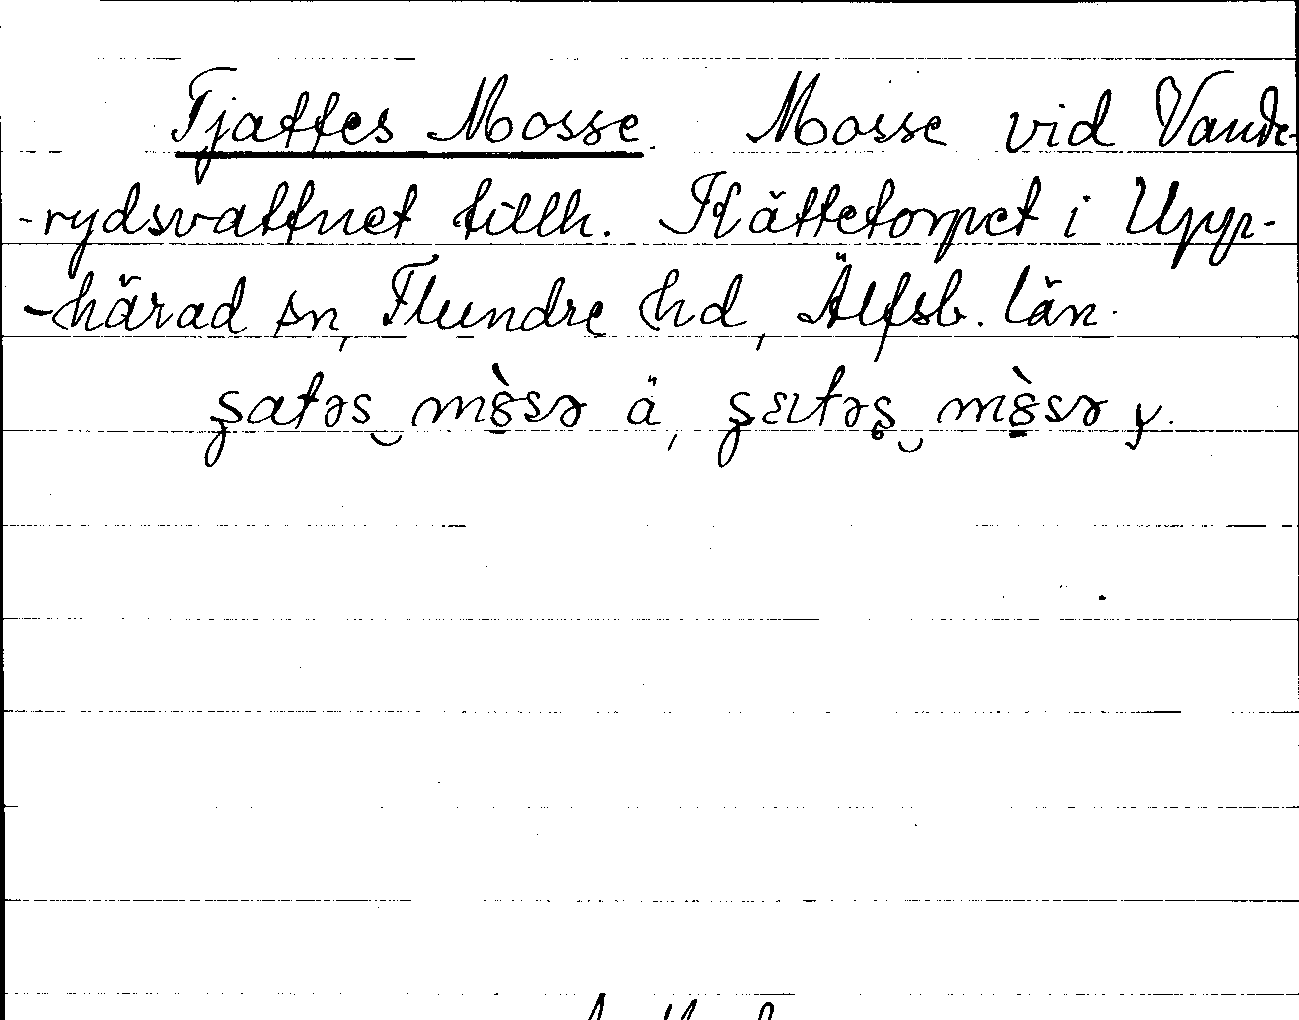 Tjattes Mosse. Mosse vid Vande-
-rydsvattnet tillh. Kättetorpet i Upp-
-härad sn, Flundre hd, Älfsb. län.
ʂatəs mòsə ä, ʂɛtəs mòsə y.